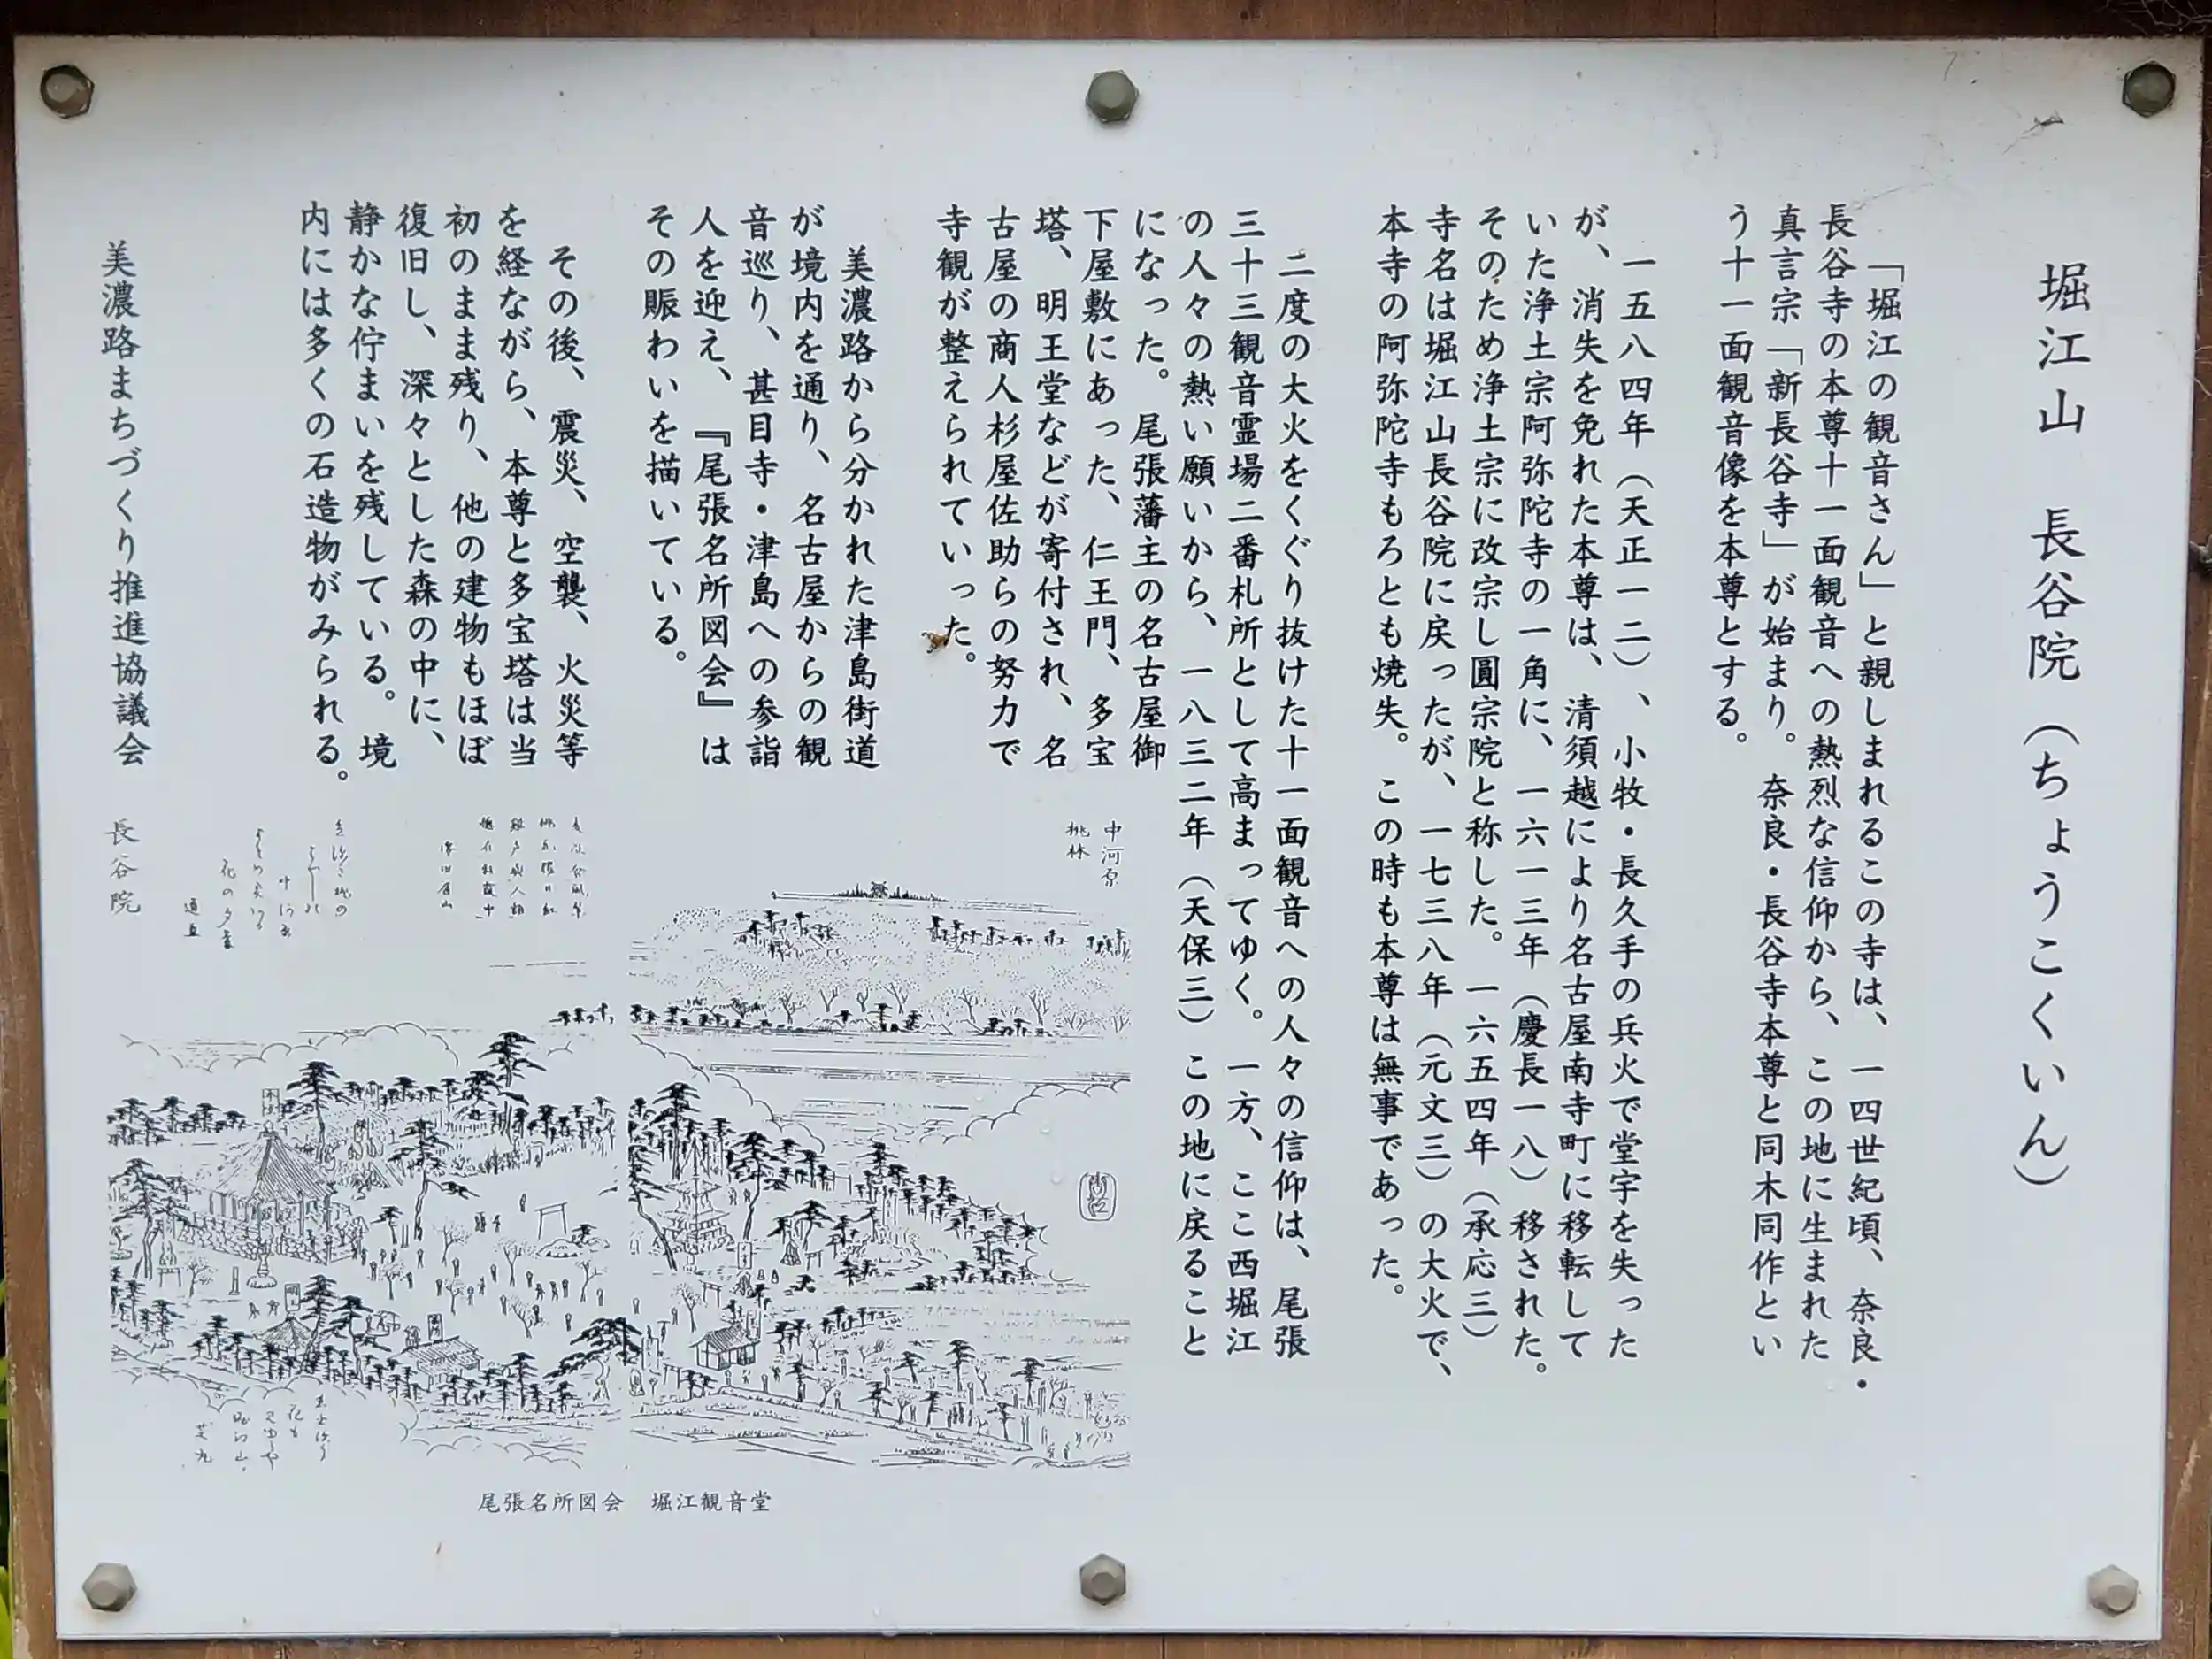 堀江山　長谷院（ちょうこくいん）
「堀江の観音さん」と親しまれるこの寺は、一四世紀頃、奈良・
長谷寺の本尊十一面観音への熱烈な信仰から、この地に生まれた
真言宗「新長谷寺」が始まり。奈良・長谷寺本尊と同木同作とい
う十一面観音像を本尊とする。
一五八四年（天正一二）、小牧・長久手の兵火で堂宇を失った
が、消失を免れた本尊は、清須越により名古屋南寺町に移転して
いた浄土宗阿弥陀寺の一角に、一六一三年（慶長一八）移された。
そのため浄土宗に改宗し圓宗院と称した。一六五四年（承応三）
寺名は堀江山長谷院に戻ったが、一七三八年（元文三）の大火で、
本寺の阿弥陀寺もろとも焼失。この時も本尊は無事であった。
二度の大火をくぐり抜けた十一面観音への人々の信仰は、尾張
三十三観音霊場二番札所として高まってゆく。一方、ここ西堀江
の人々の熱い願いから、一八三二年（天保三）この地に戻ること
になった。尾張藩主の名古屋御
下屋敷にあった、仁王門、多宝
塔、明王堂などが寄付され、名
古屋の商人杉屋佐助らの努力で
寺観が整えられていった。
美濃路から分かれた津島街道
が境内を通り、名古屋からの観
音巡り、甚目寺・津島への参詣
人を迎え、『尾張名所図会』は
その賑わいを描いている。
その後、震災、空襲、火災等
を経ながら、本尊と多宝塔は当
初のまま残り、他の建物もほぼ
復旧し、深々とした森の中に、
静かな佇まいを残している。境
内には多くの石造物がみられる。
美濃路まちづくり推進協議会　長谷院
中河原
桃林
尾張名所図会　堀江観音堂